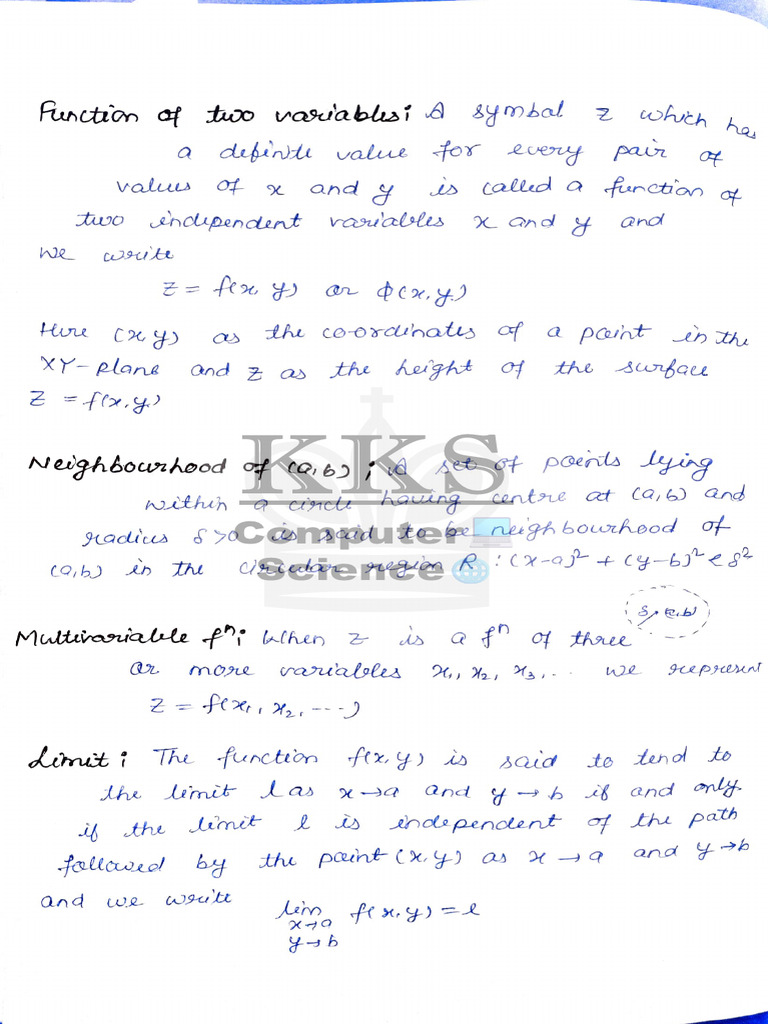 Function of two variables; A symbal z which has
a definite value for every pair of
values of x and y is called a function of
two independent variables x and y and
we write
z = f(x, y) or ϕ(x, y)
Here (x, y) as the co-ordinates of a point in the
XY-plane and z as the height of the surface
z = f(x, y)
KKS
Computer
Science
Neighbourhood of (a, b); A set of points lying
within a circle having centre at (a, b) and
radius δ >0 is said to be neighbourhood of
(a, b) in the circular region R : (x-a)² + (y-b)² < δ²
δ, (a, b)
Multivariable fⁿ; When z is a fⁿ of three
or more variables x₁, x₂, x₃, ... we represent
z = f(x₁, x₂, ----)
Limit; The function f(x, y) is said to tend to
the limit l as x → a and y → b if and only
if the limit l is independent of the path
followed by the point (x, y) as x → a and y → b
and we write
lim f(x, y) = l
x→a
y→b